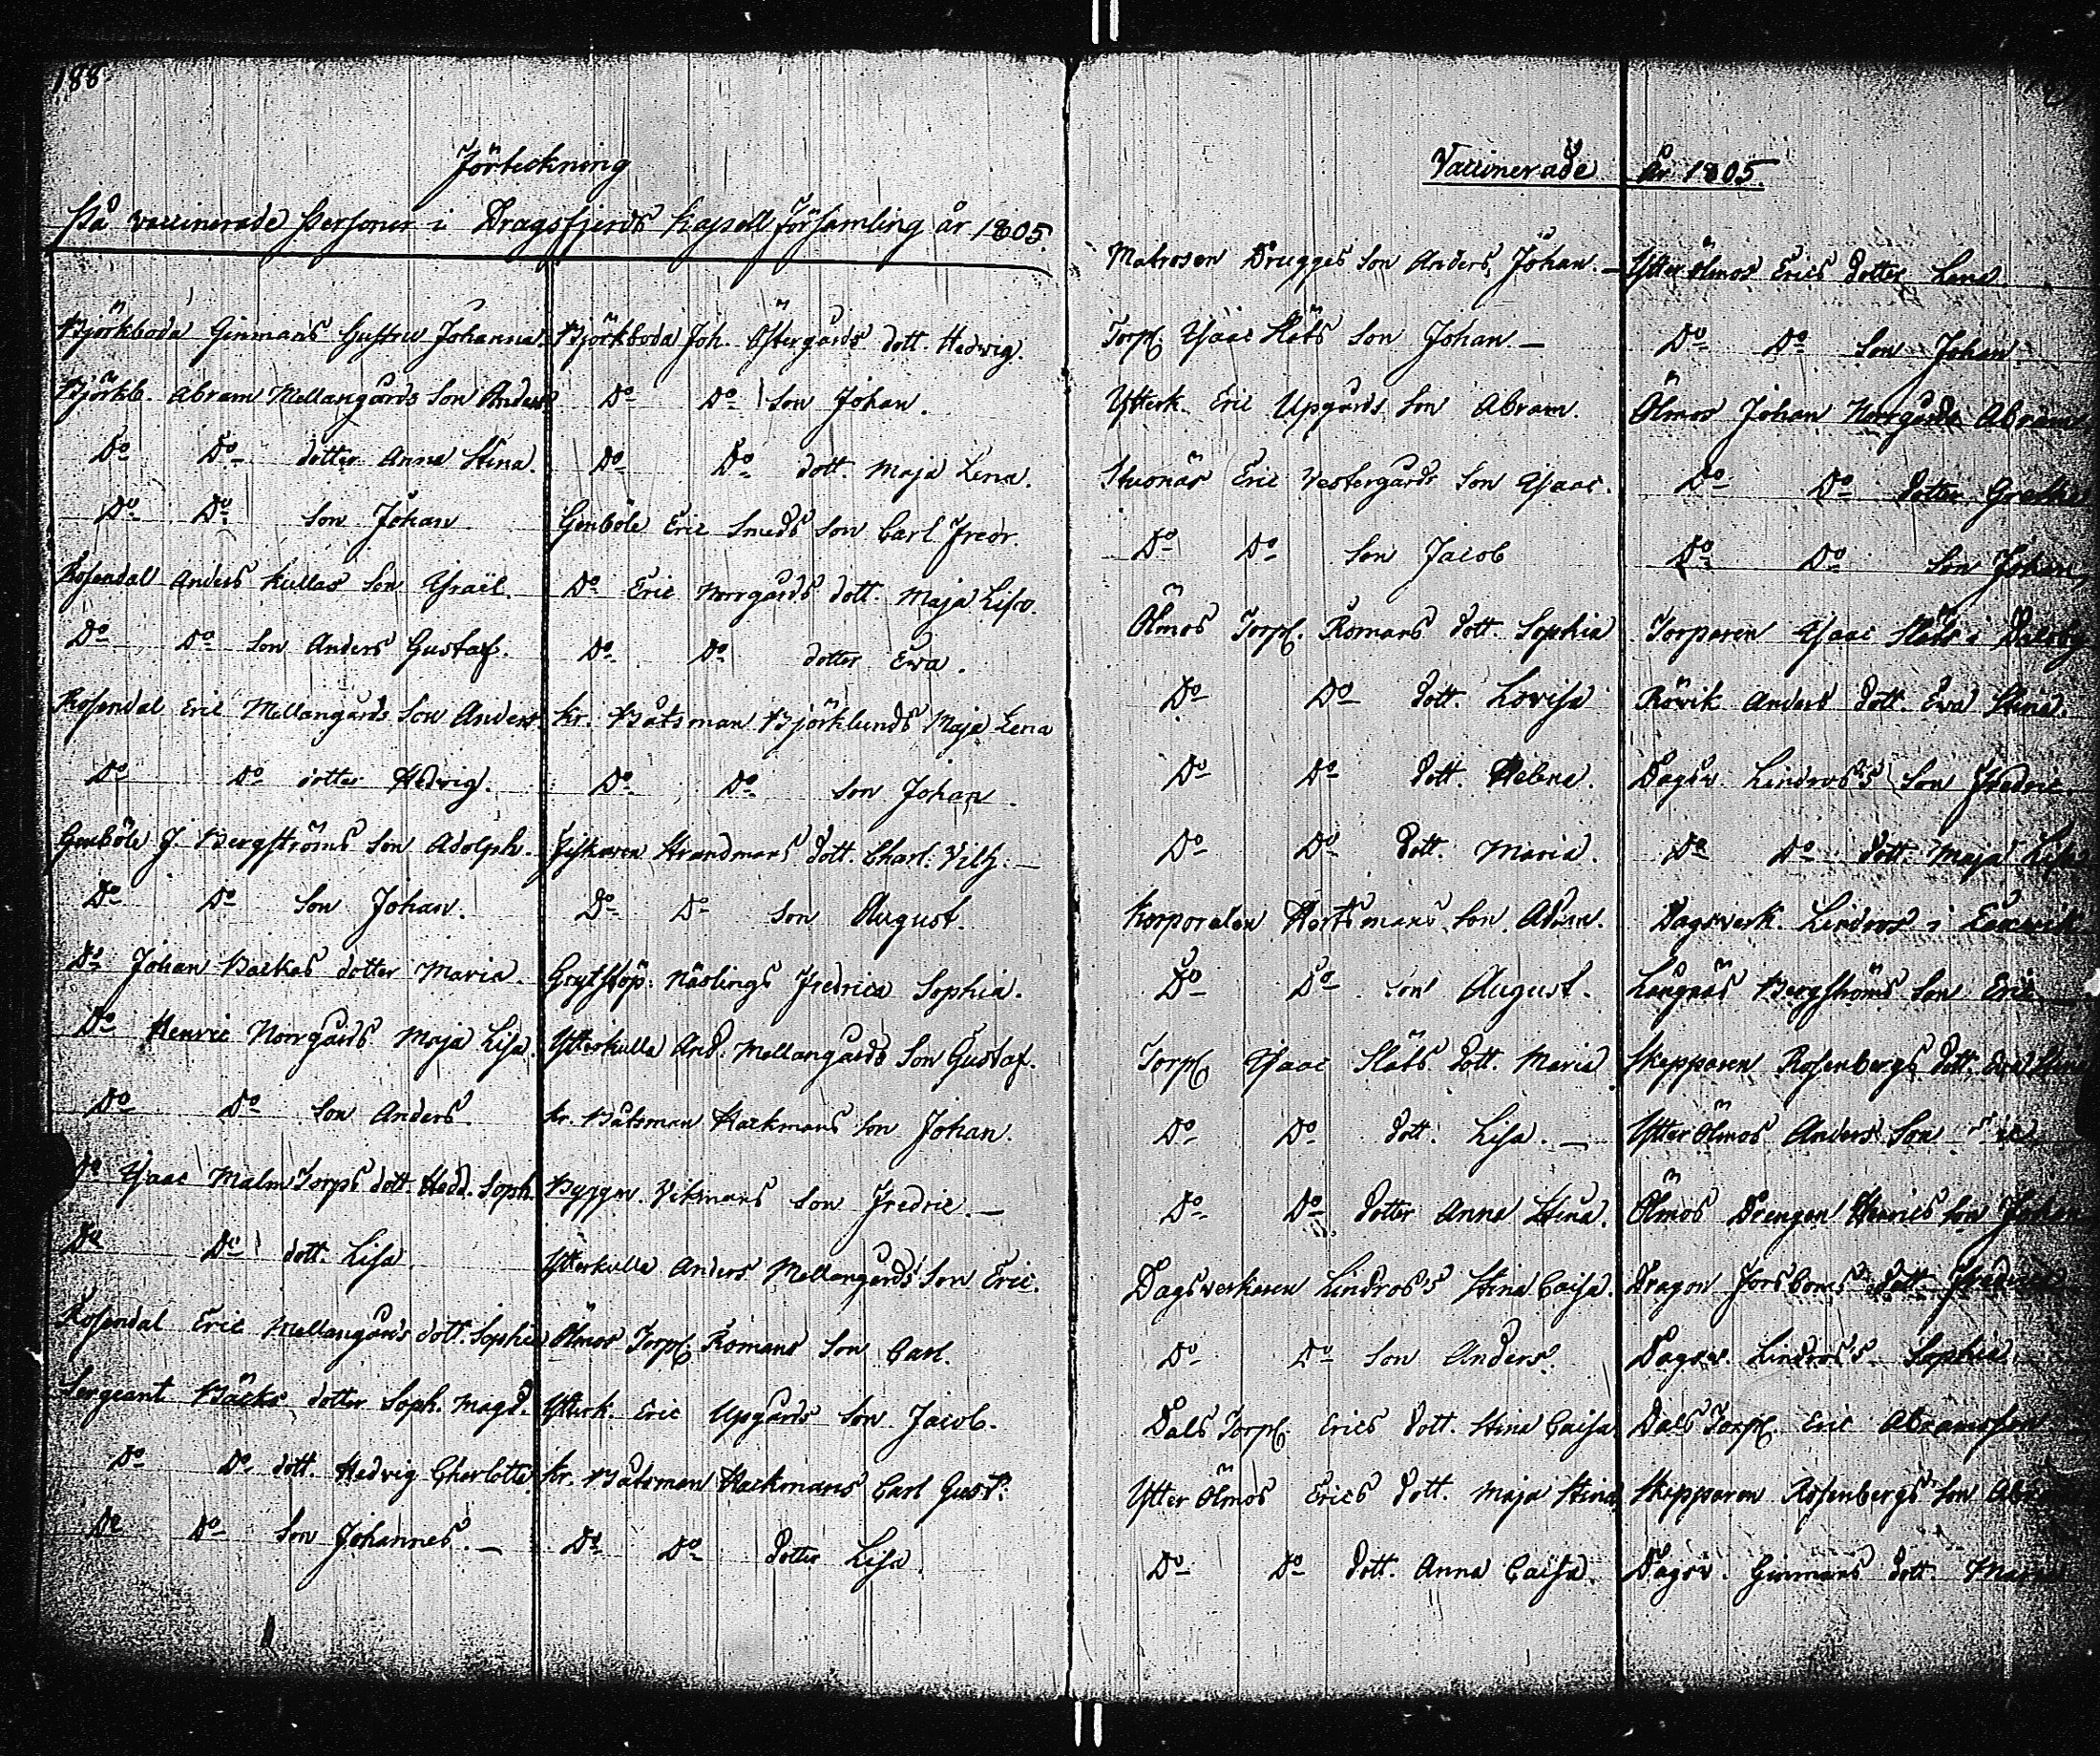 188
Förteckning
På vaccinerade Personer i Dragsfjerds Kapell Församling år 1805.
Björkboda Ginmans Hustru Johanna.
Björkb. Abram Mellangårds Son Anders
Do Do dotter Anna Stina.
Do Do Son Johan
Rosendal Anders Kullas Son Isráel.
Do Do Son Anders Gustaf.
Rosendal Eric Mellangårds Son Anders.
Do Do dotter Hedvig.
Genböle J. Bergströms Son Adolph.
Do Do Son Johan.
Do Johan Backas dotter Maria.
Do Henric Norrgårds Maja Lisa.
Do Do Son Anders.
Do Isaac Malm Torps dott. Hedd. Soph.
Do Do dott. Lisa.
Rosendal Eric Mellangårds dott. Sophia
Sergeant Bäcks dotter Soph. Magd.
Do Do dott. Hedvig Charlotta.
Do Do Son Johannes. —
Björkboda Joh. Östergårds dott. Hedvig.
Do Do Son Johan.
Do Do dott. Maja Lena.
Genböle Eric Smeds Son Carl Fredr.
Do Eric Norrgårds dott. Maja Lisa.
Do Do dotter Ewa.
Kr. Båtsman Björklunds Maja Lena
Do Do Son Johan.
Fiskaren Strandmans dott. Charl. Vilh. —
Do Do Son August.
Näslings Fredrica Sophia.
Ytterkulla And. Mellangårds Son Gustaf.
Kr. Båtsman Hackmans Son Johan.
Byggm. Vikmans Son Fredric. —
Ytterkulla Anders Mellangårds Son Eric.
Ölmos Torp. Romans Son Carl.
Ytterk. Eric Upgårds Son Jacob.
Kr. Båtsman Hackmans Carl Gust.
Do Do dotter Lisa.
Vaccinerade År 1805.
Matrosen Drugges Son Anders Johan. —
Torp. Isaac Slåts Son Johan. —
Ytterk. Eric Upgårds Son Abram.
Stusnäs Eric Vestergårds Son Isaac.
Do Do Son Jacob
Ölmos Torp. Romans dott. Sophia
Do Do dott. Lovisa
Do Do dott. Helena.
Do Do dott. Maria.
Korporalen Hortsmans Son Adam.
Do Do Son August.
Torp. Isaac Slåts dott. Maria.
Do Do dott. Lisa. —
Do Do dotter Anna Stina.
Dagsverkaren Lindros's Stina Caisa.
Do Do Son Anders.
Dals Torp. Erics dott. Stina Caisa
Ytter Ölmos Erics dott. Maja Stina
Do Do dott. Anna Caisa.
Ytter Ölmos Erics dotter Lena
Do Do Son Johan
Ölmos Johan Norrgårds Abram
Do Do dotter Gretha
Do Do Son Johan
Torparen Isaac Slåts i Dalsby
Rövik Anders dott. Ewa Stina.
Dagsv. Lindros's Son Fredric.
Do Do dott. Maja Lisa
Dagsverk. Lindros i
Långnäs Bergströms Son Eric —
Skepparen Rosenbergs dott. Ewa Stina
Ytter Ölmos Anders Son
Ölmos Drengen Henrics Son Johan
Dragon Forsboms dott. Fredrica
Dagsv. Lindros's Sophia.
Dals Torp. Eric Abramsson
Skepparen Rosenbergs Son
Dagsv. Ginmans dott. Maria